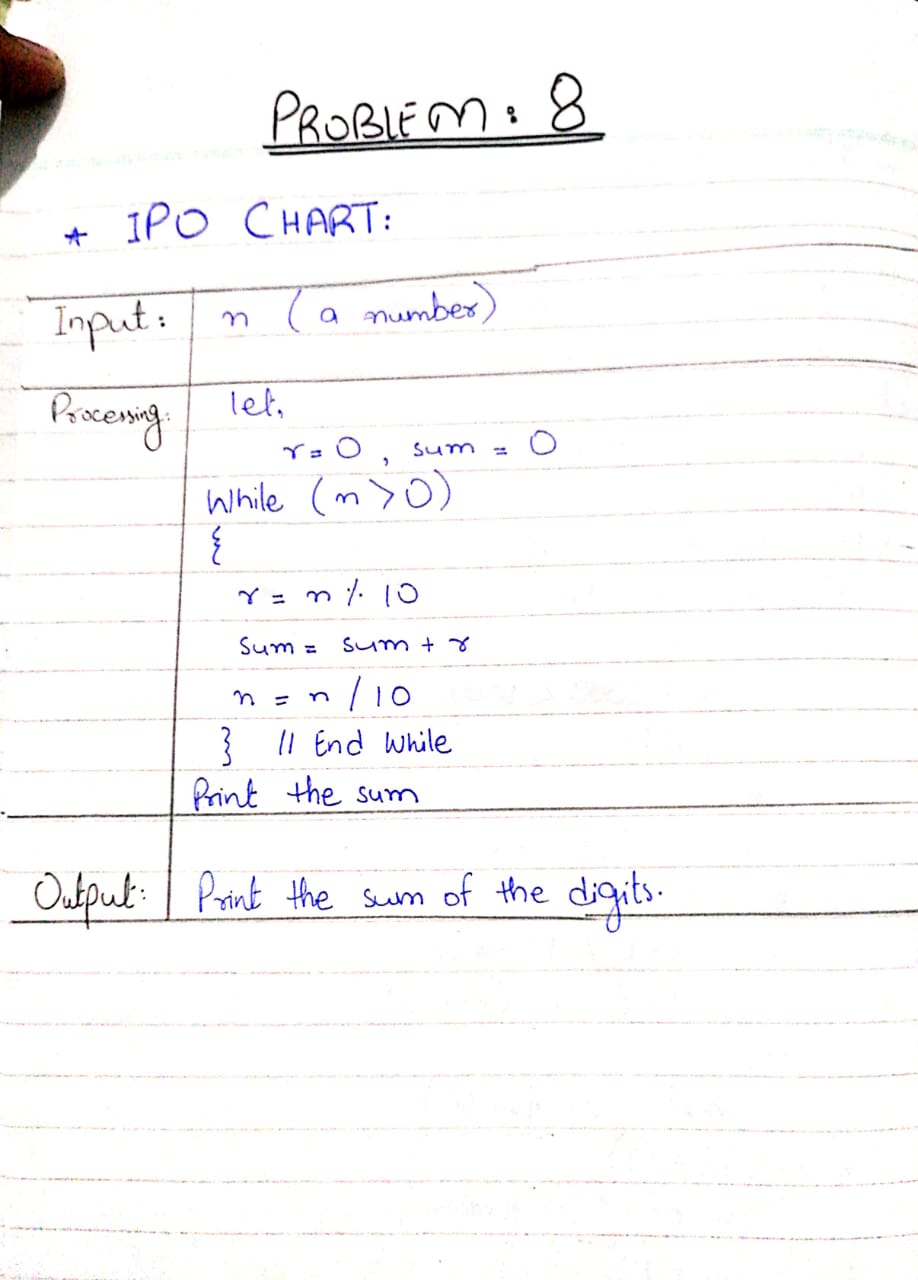 PROBLEM: 8
* IPO CHART:
Input: n (a number)
Processing: let,
r = 0 , sum = 0
While (n > 0)
{
r = n % 10
Sum = sum + r
n = n / 10
} // End While
Print the sum
Output: Print the sum of the digits.